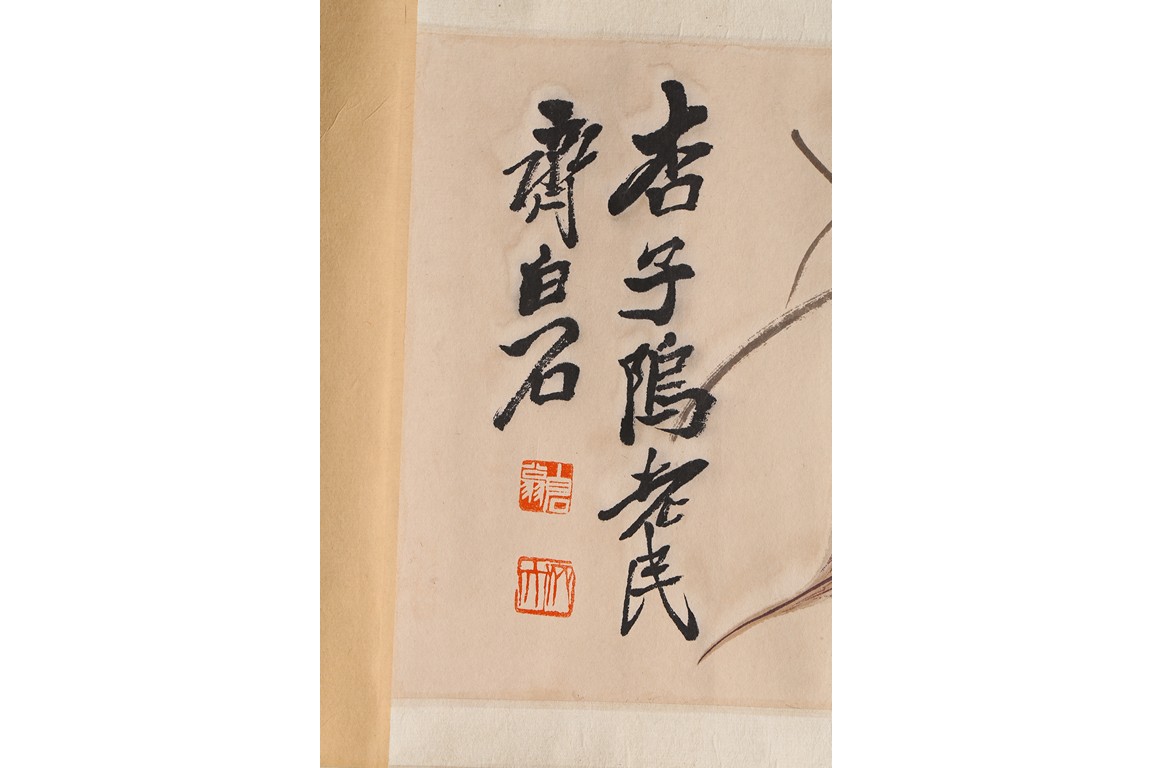 杏子隖老民
齊白石